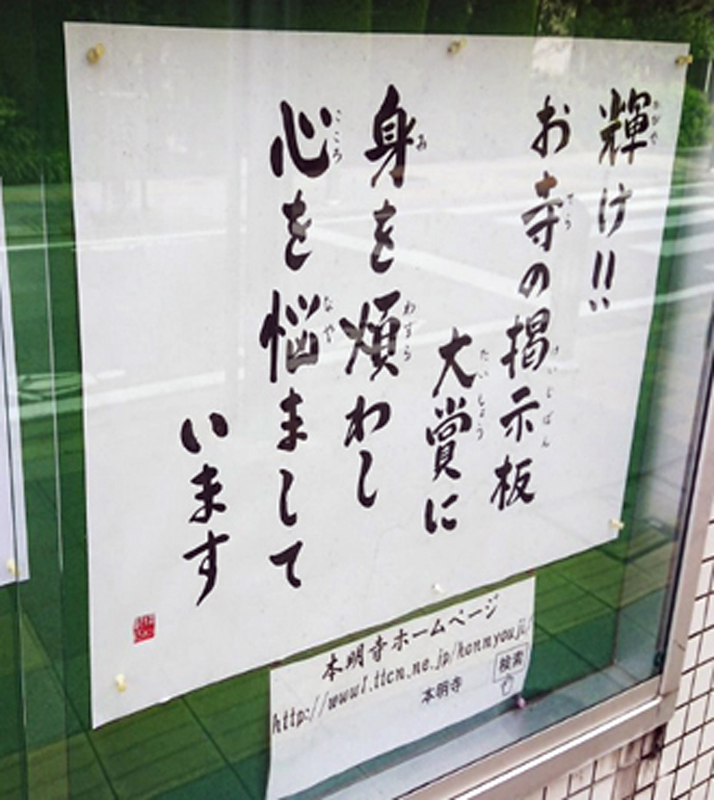 輝け!!
お寺の掲示板
大賞に
身を煩わし
心を悩まして
います
本明寺ホームページ
http://www1.ttcn.ne.jp/honmyouji/
検索
本明寺